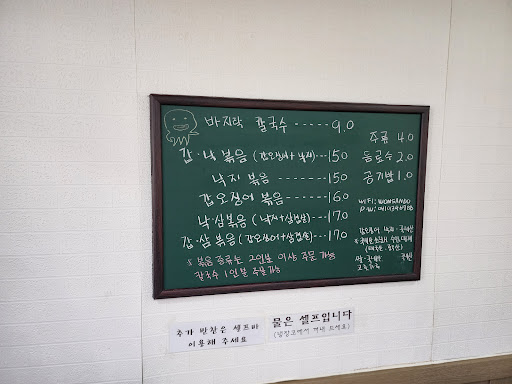 바지락 칼국수 ----- 9.0
갑·낙 볶음 (갑오징어+낙지)---150
낙지 볶음 ------- 150
갑오징어 볶음 ------160
낙·삼볶음 (낙지+삼겹살)---170
갑·삼 볶음 (갑오징어+삼겹살)---170
* 볶음 종류는 2인분 이상 주문 가능
칼국수 1인분 주문가능
주류 4.0
음료수 2.0
공기밥 1.0
WIFI: WONSANDO
갑오징어
쌀·국내산
고춧가루
추가 반찬은 셀프바
이용해 주세요
물은 셀프입니다
(냉장고에서 꺼내 드세요)